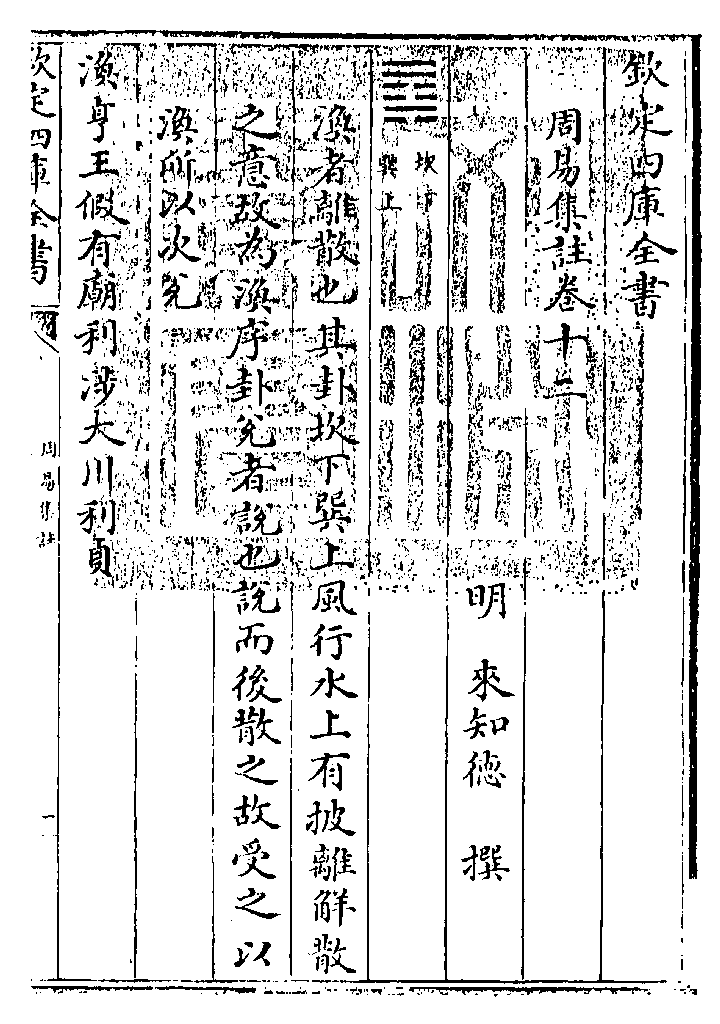 欽定四庫全書
周易集註卷十二
明 來知德 撰
坎下
巽上
渙者離散也其卦坎下巽上風行水上有披離解散
之意故為渙序卦兊者說也說而後散之故受之以
渙所以次兊
渙亨王假有廟利涉大川利貞
欽定四庫全書
周易集註
一